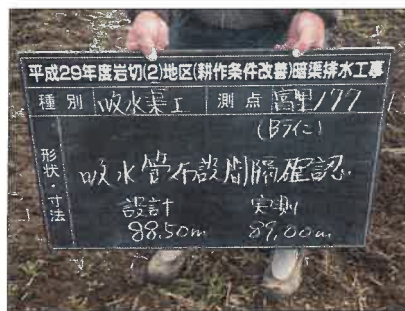 平成29年度岩切(2)地区(耕作条件改善)暗渠排水工事
種別 吸水渠工 測点 富里177
(Bライン)
形状・寸法
吸水管布設間隔確認
設計 実測
88.50m 89.00m